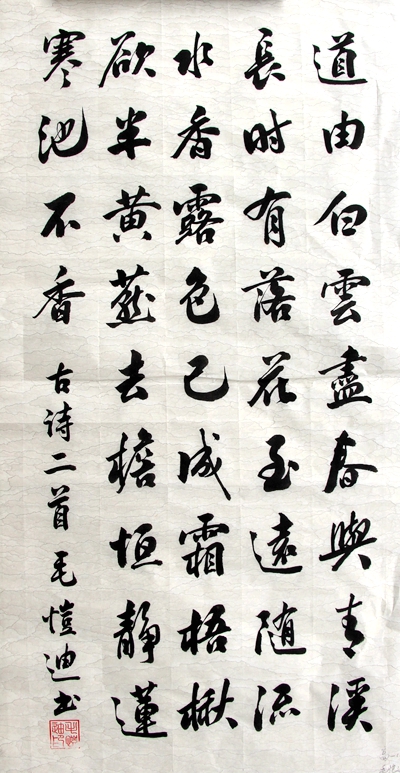 道由白雲盡春與青溪
長时有落花至遠随流
水香露色已成霜梧楸
欲半黄燕去檐恒静蓮
寒池不香 古诗二首 毛愷迪书